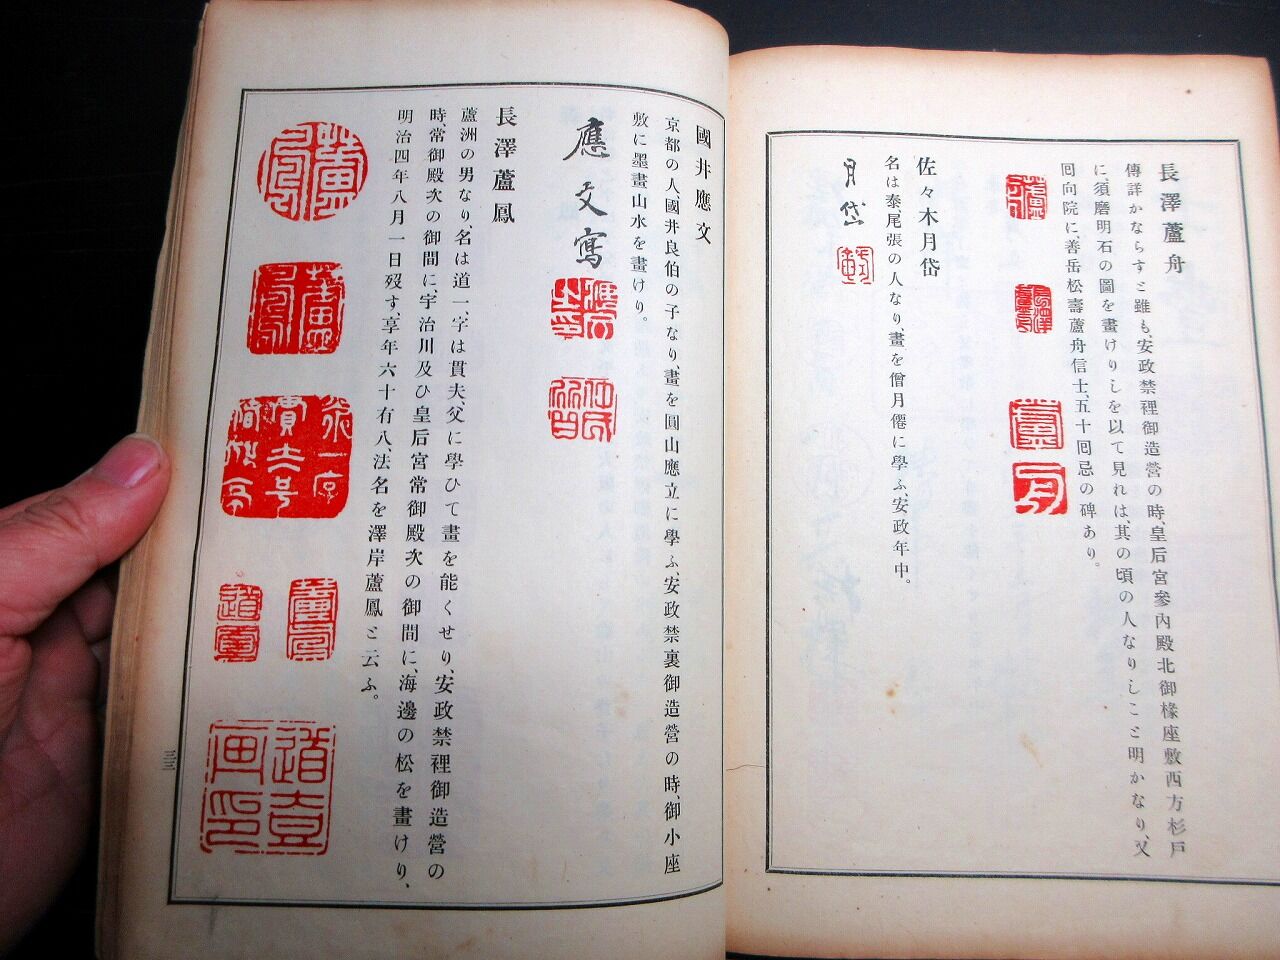 長澤蘆舟
傳詳かならすと雖も、安政禁裡御造營の時、皇后宮參內殿北御椽座敷西方杉戸
に、須磨明石の圖を畫けりしを以て見れは、其の頃の人なりしこと明かなり、又
囘向院に、善岳松壽蘆舟信士、五十囘忌の碑あり。
佐々木月岱
名は泰、尾張の人なり、畫を僧月僊に學ふ、安政年中。
月岱
國井應文
京都の人、國井良伯の子なり、畫を圓山應立に學ふ、安政禁裏御造營の時、御小座
敷に墨畫山水を畫けり。
應文寫
長澤蘆鳳
蘆洲の男なり、名は道一、字は貫夫、父に學ひて畫を能くせり、安政禁裡御造營の
時、常御殿次の御間に、宇治川及ひ皇后宮常御殿次の御間に、海邊の松を畫けり、
明治四年八月一日歿す、享年六十有八、法名を澤岸蘆鳳と云ふ。
蘆鳳
蘆鳳
道壹画印
三三